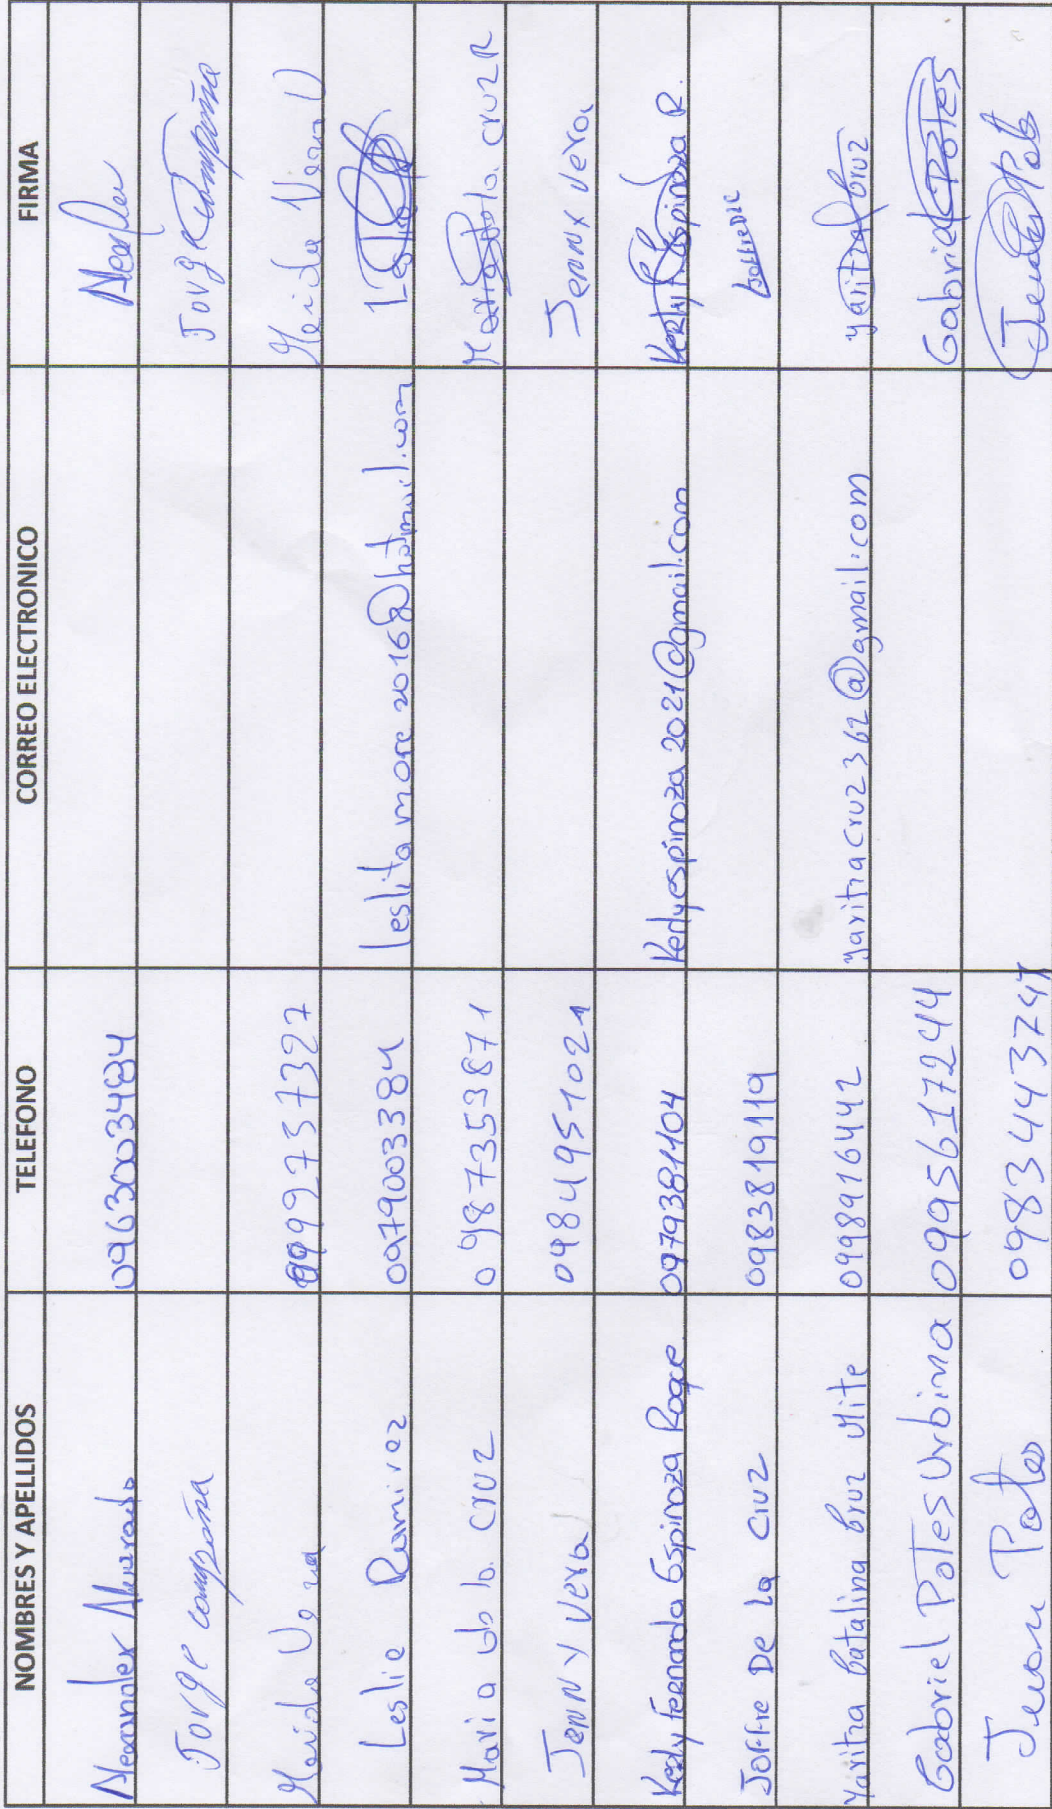 NOMBRES Y APELLIDOS TELEFONO CORREO ELECTRONICO FIRMA
Alexander Alvarado 0963003484
Jorge Campaña Jorge Campaña
Vera 0999737327 Vera
Leslie Ramirez 0979003384 leslitamore2016@hotmail.com
Maria de la Cruz 0987353871 Maria de la Cruz R
Jenny Vera 0984951021 Jenny Vera
Kerly Fernanda Espinoza Roque 0979381104 Kerlyespinoza2021@gmail.com Kerly Espinoza R.
Joffre De La Cruz 0983819119
Yaritza Catalina Cruz Mite 0998916442 yaritzacruz362@gmail.com yaritza Cruz
Gabriel Potes Urbina 0995617244 Gabriel Potes
Potes 0983443747